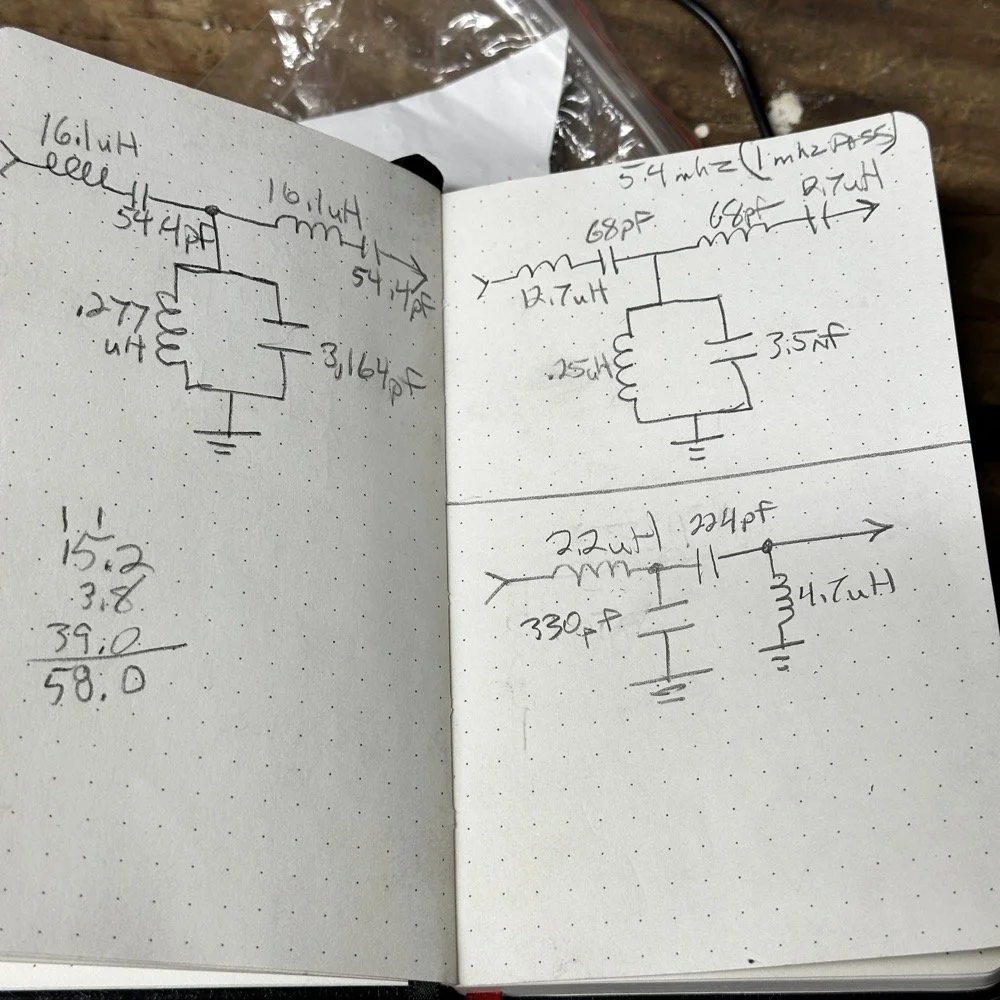 16.1uH
54.4pF
16.1uH
54.4pF
.277
uH
3,164pF
1 1
15.2
3.8
39.0
58.0
5.4 mhz (1 mhz PASS)
68pF
68pf
12.7uH
12.7uH
.25uH
3.5Nf
2.2uH
224pF
330pF
4.7uH